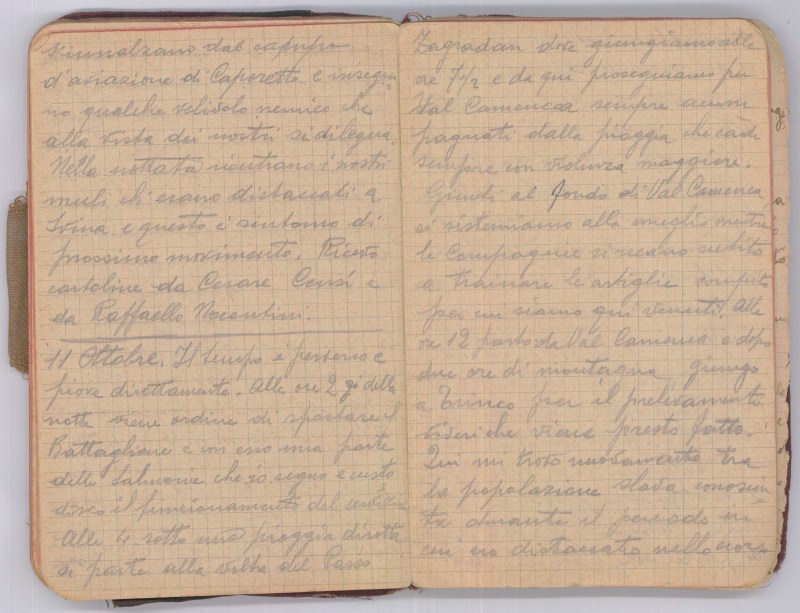 s'innalzano dal campo
d'aviazione di Caporetto e insegno
no qualche velivolo nemico che
alla vista dei nostri si dilegua.
Nella nottata rientrano i nostri
muli ch'erano distaccati a
Svina e questo è sintomo di
prossimo movimento. Ricevo
cartoline da Cesare Censi e
da Raffaello Nocentini.
11 Ottobre. Il tempo è perverso e
piove dirottamente. Alle ore 2 di della
notte viene ordine di spostare il
Battaglione e con esso una parte
delle Salmerie che io seguo e custo
disco il funzionamento del servizio
Alle 4 sotto una pioggia dirotta
si parte alla volta del Passo
Zagradan dove giungiamo alle
ore 7 1/2 e da qui proseguiamo per
Val Camenca sempre accom
pagnati dalla pioggia che cade
sempre con violenza maggiore.
Giunti al fondo di Val Camenca
ci sistemiamo alla meglio mentre
le Compagnie si recano subito
a trainare le artiglie compito
per cui siamo qui venuti. Alle
ore 12 parto da Val Camenca e dopo
due ore di montagna giungo
a Trinco per il prelevamento
viveri che viene presto fatto.
Qui mi trovo nuovamente tra
la popolazione slava conosciu
ta durante il periodo in
cui ero distaccato nello scorso